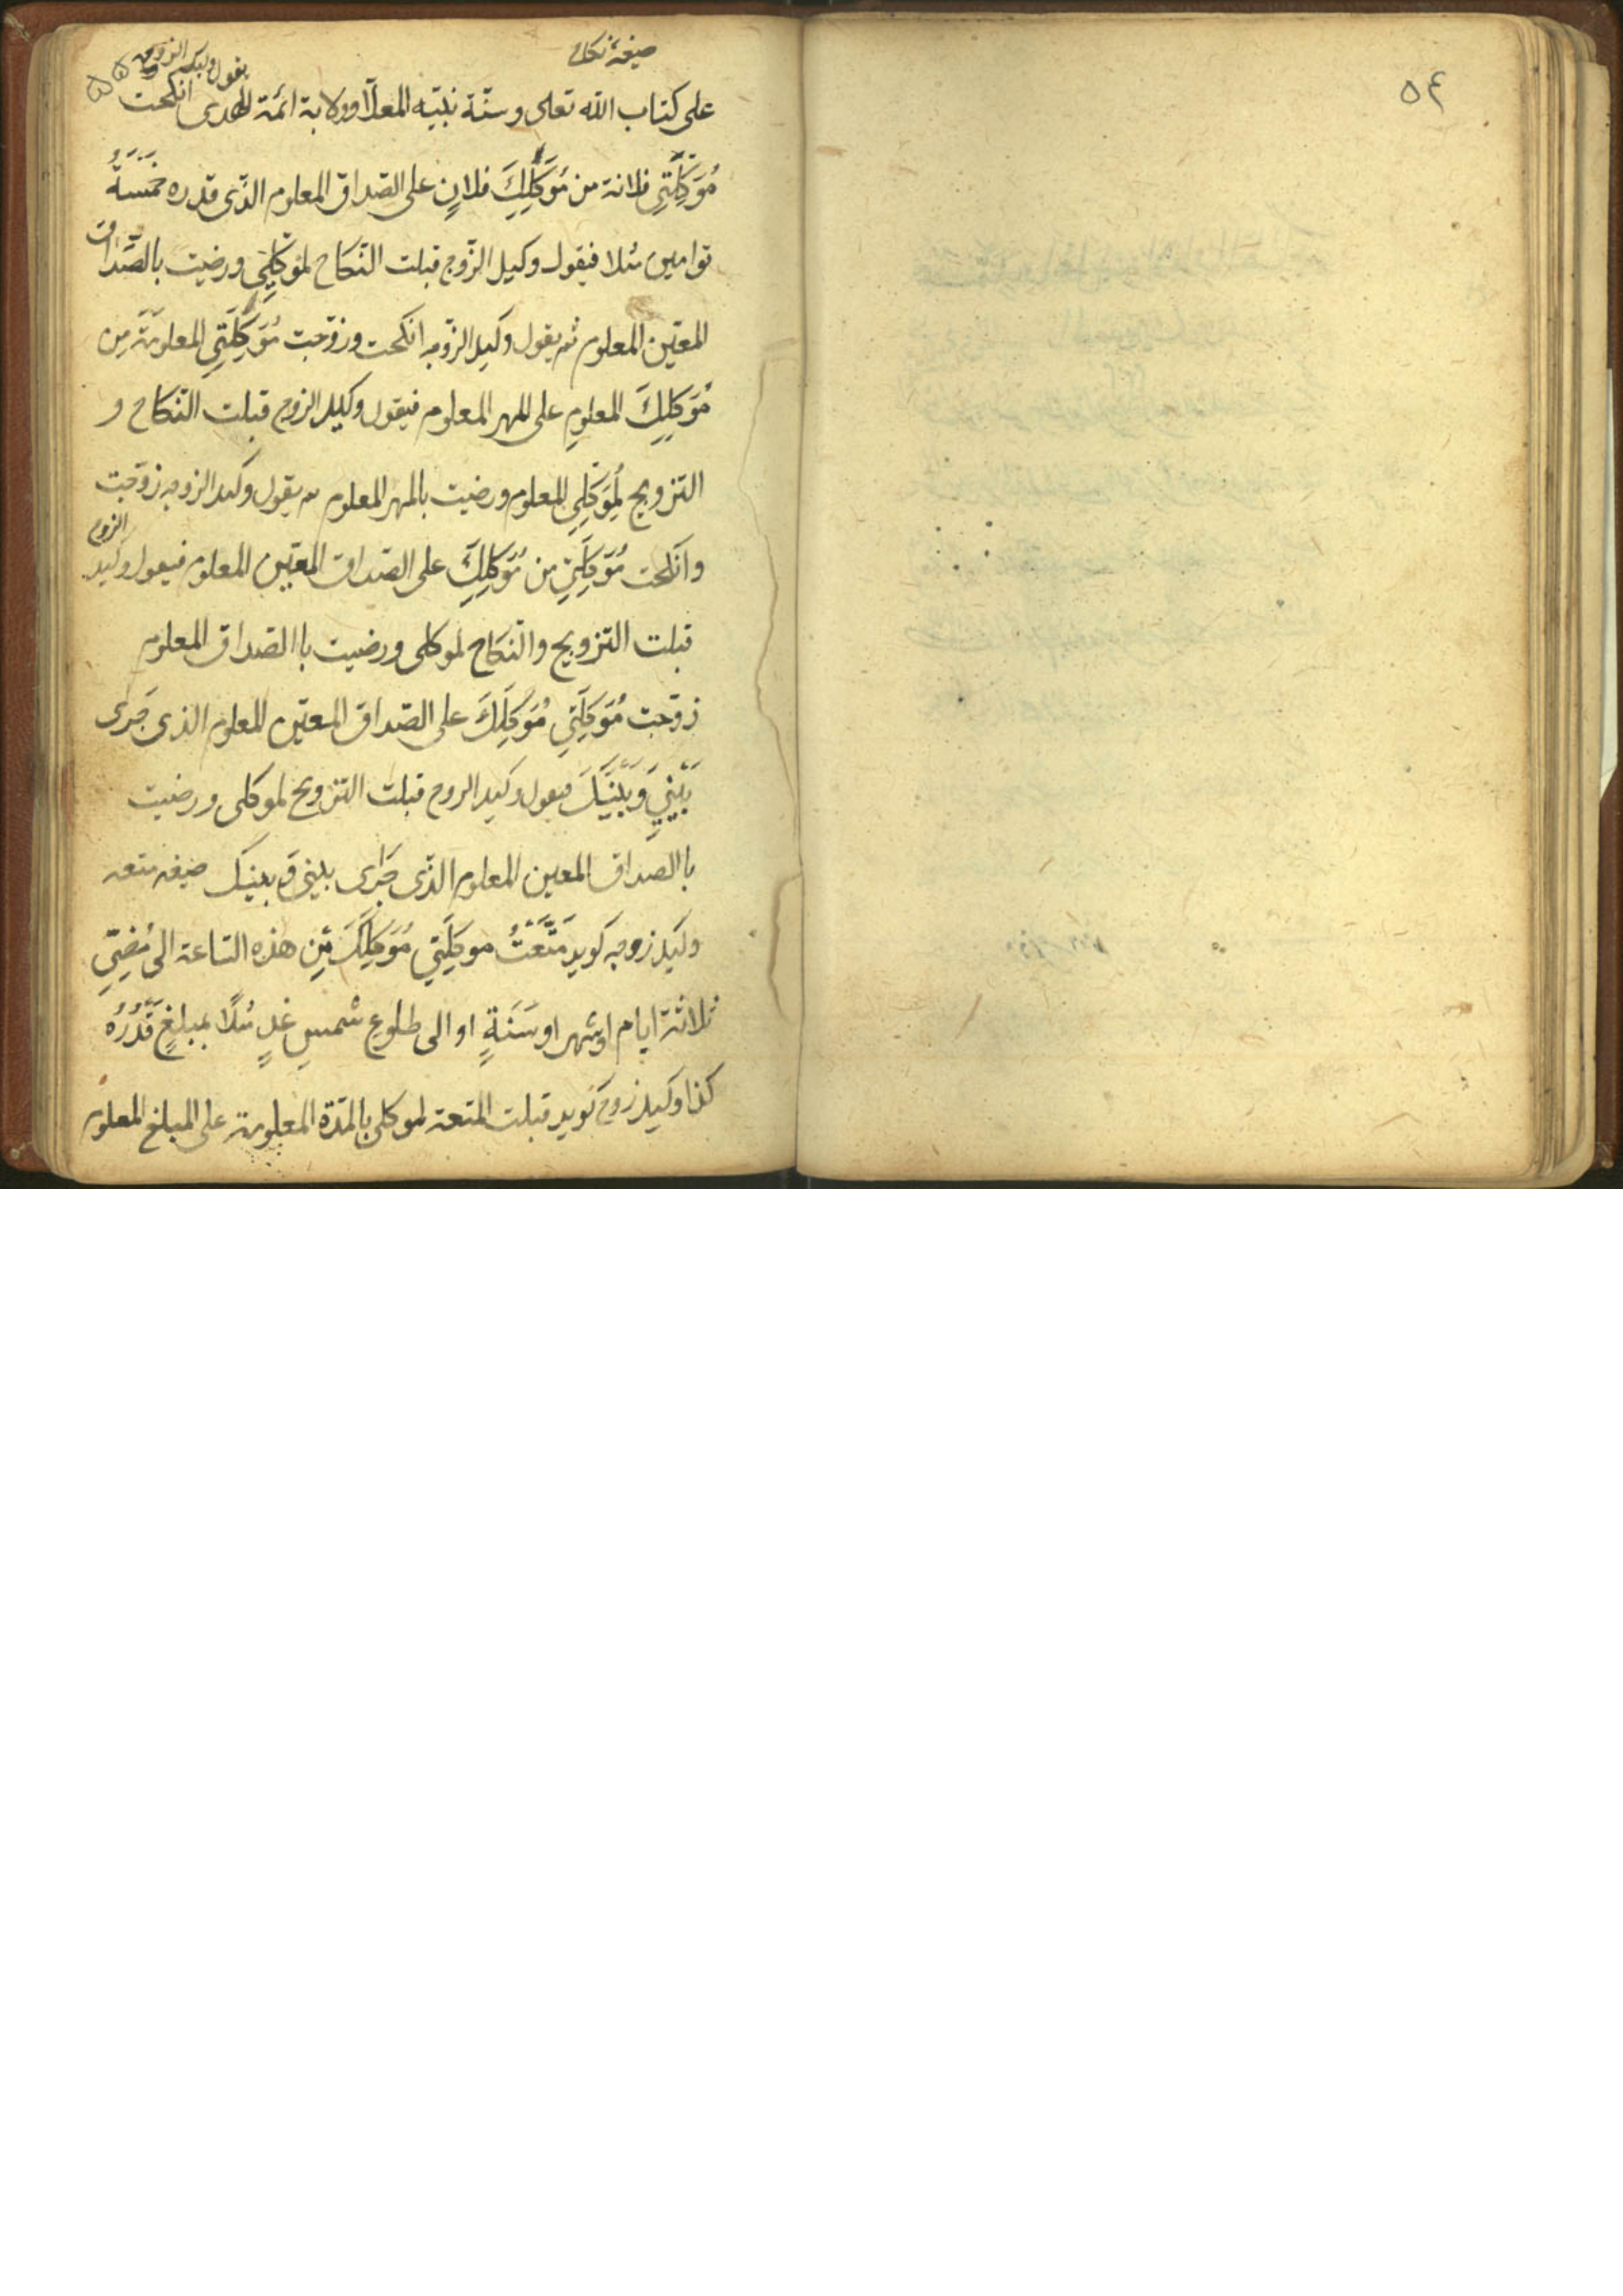 ۵۴
صیغهٔ نکاح
۵۵
یقول وکیل الزوجه
علی کتاب الله تعلی و سنّة نبیّه المعلّا و ولایة ائمّة الهدی انکحت
مُوَکِّلَتِی فلانة من مُوَکِّلِكَ فلانٍ علی الصّداق المعلوم الذّی قدره خَمسَةُ
توامین مثلا فیقول وکیل الزّوج قبلت النّکاح لمُوَکِّلِی و رضیت بالصّداق
المعیّن المعلوم ثم یقول وکیل الزّوجه انکحت و زوّجت مُوَکِّلَتِی المعلومَة مِن
مُوَکِلِكَ المعلومِ علی المهر المعلوم فیقول وکیل الزوج قبلت النّکاح و
التزویج لِمُوَکِلِی المعلوم و رضیت بالمهر المعلوم ثم یقول وکیل الزوجه زوّجت
وانکحت مُوَکِلَتِی من مُوَکِلِكَ علی الصّداق المعیّن المعلوم فیقول وکیل الزوج
قبلت التّزویج والنّکاح لموکلی و رضیت باالصّداق المعلوم
زوّجت مُوَکِلَتِی مُوَکِلَكَ علی الصّداق المعیّن المعلوم الذی جَرَی
بَیْنِی وَ بَیْنَكَ فیقول وکیل الزوج قبلت التزویج لموکلی و رضیت
باالصداق المعین المعلوم الذّی جَرَی بینی وَ بینک صیغه متعه
وکیل زوجه کوید مَتَّعْتُ موکِلَتِی مُوَکِلَكَ مِن هذه السّاعة الی مُضِیِّ
ثلاثة ایام او شهر او سَنَةٍ او الی طلوع شمسِ غدٍ مثلًا بمبلغٍ قَدْرُهُ
کذا وکیل زوج کوید قبلت المتعة لموکلی بالمدّة المعلومة علی المبلغ المعلوم